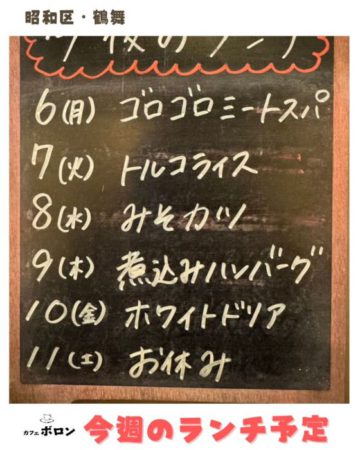 昭和区・鶴舞
今後のランチ
6(月) ゴロゴロミートスパ
7(火) トルコライス
8(水) みそカツ
9(木) 煮込みハンバーグ
10(金) ホワイトドリア
11(土) お休み
カフェ ボロン
今週のランチ予定